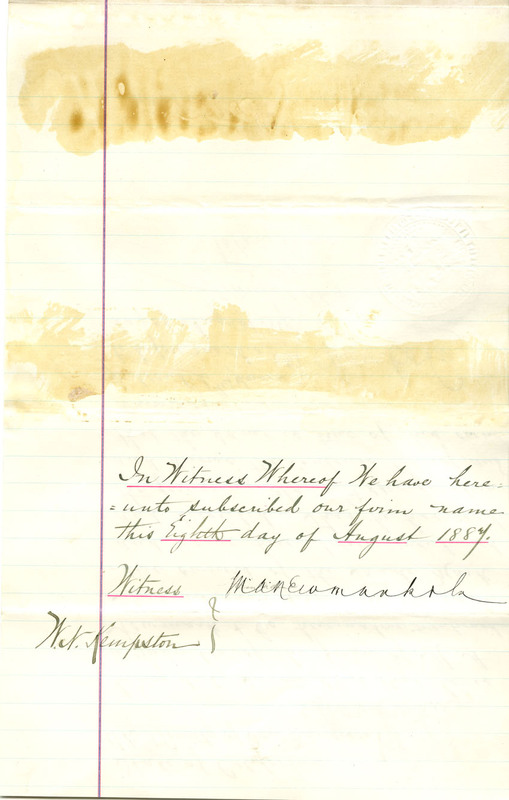 In Witness Whereof We have here=
=unto subscribed our firm name
this Eighth day of August 1887.
Witness
W. N. Kempston